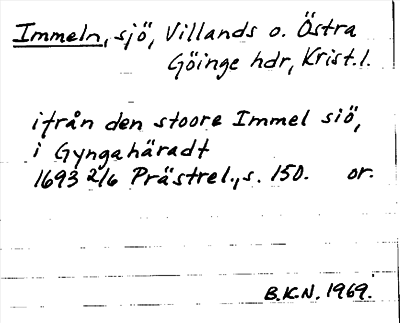 Immeln, sjö, Villands o. Östra
Göinge hdr, Krist.l.
ifrån den stoore Immel siö,
i Gyngahäradt
1693 2/6 Prästrel., s. 150. or.
B.K.N. 1969.